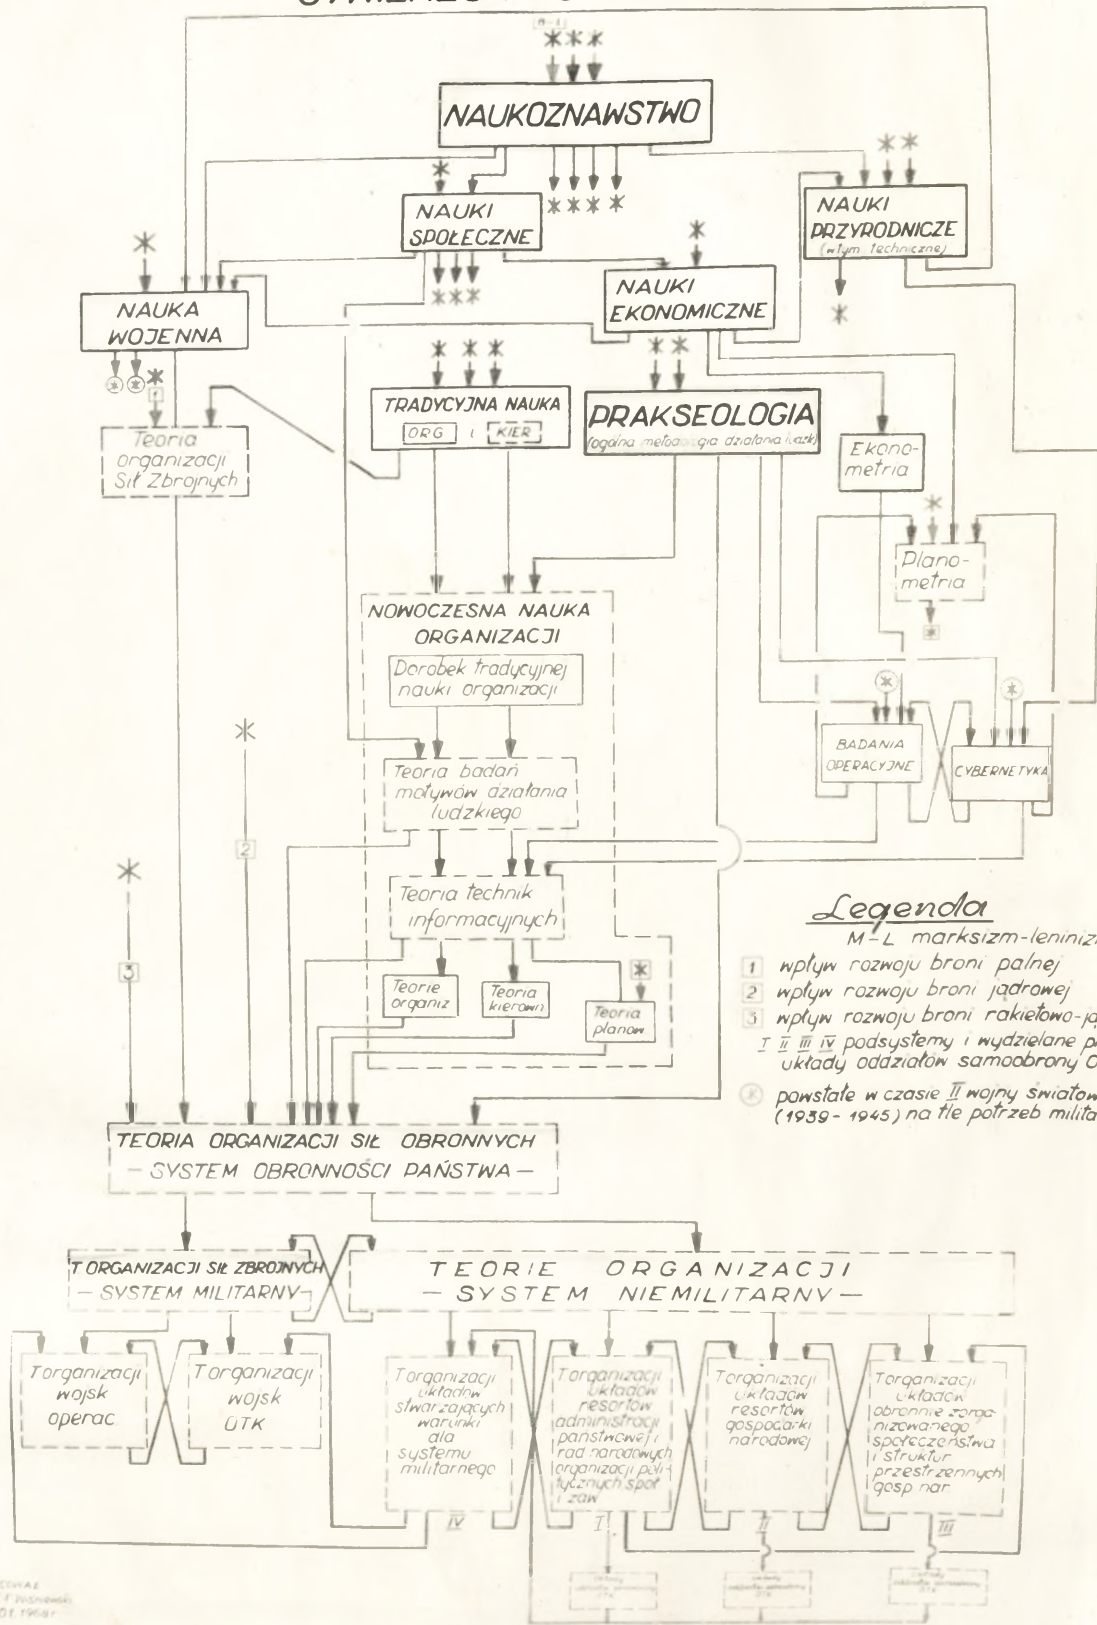 M-L
NAUKOZNAWSTWO
NAUKI
SPOŁECZNE
NAUKI
PRZYRODNICZE
(w tym techniczne)
NAUKA
WOJENNA
NAUKI
EKONOMICZNE
TRADYCYJNA NAUKA
ORG i KIER
PRAKSEOLOGIA
(ogólna metodologia działania
1
Teoria
organizacji
Sił Zbrojnych
Ekono-
metria
Plano-
metria
NOWOCZESNA NAUKA
ORGANIZACJI
Dorobek tradycyjnej
nauki organizacji
BADANIA
OPERACYJNE
CYBERNETYKA
Teoria badań
motywów działania
ludzkiego
2
Teoria technik
informacyjnych
3
Teorie
organiz
Teoria
kierown
Teoria
planow
Legenda
M-L marksizm-leniniz
1 wpływ rozwoju broni palnej
2 wpływ rozwoju broni jądrowej
3 wpływ rozwoju broni rakietowo-ją
I II III IV podsystemy i wydzielane p
układy oddziałów samoobrony O
powstałe w czasie II wojny świato
(1939-1945) na tle potrzeb milita
TEORIA ORGANIZACJI SIŁ OBRONNYCH
— SYSTEM OBRONNOŚCI PAŃSTWA —
T ORGANIZACJI SIŁ ZBROJNYCH
— SYSTEM MILITARNY —
TEORIE ORGANIZACJI
— SYSTEM NIEMILITARNY —
T organizacji
wojsk
operac
T organizacji
wojsk
OTK
T organizacji
układów
stwarzających
warunki
dla
systemu
militarnego
T organizacji
układów
resortów
administracji
państwowej i
rad narodowych
organizacji poli-
tycznych społ
i zaw
T organizacji
układów
resortów
gospodarki
narodowej
T organizacji
układów
obronnie zorga-
nizowanego
społeczeństwa
i struktur
przestrzennych
gosp nar
IV
I
II
III
Wiśniewski
1968r